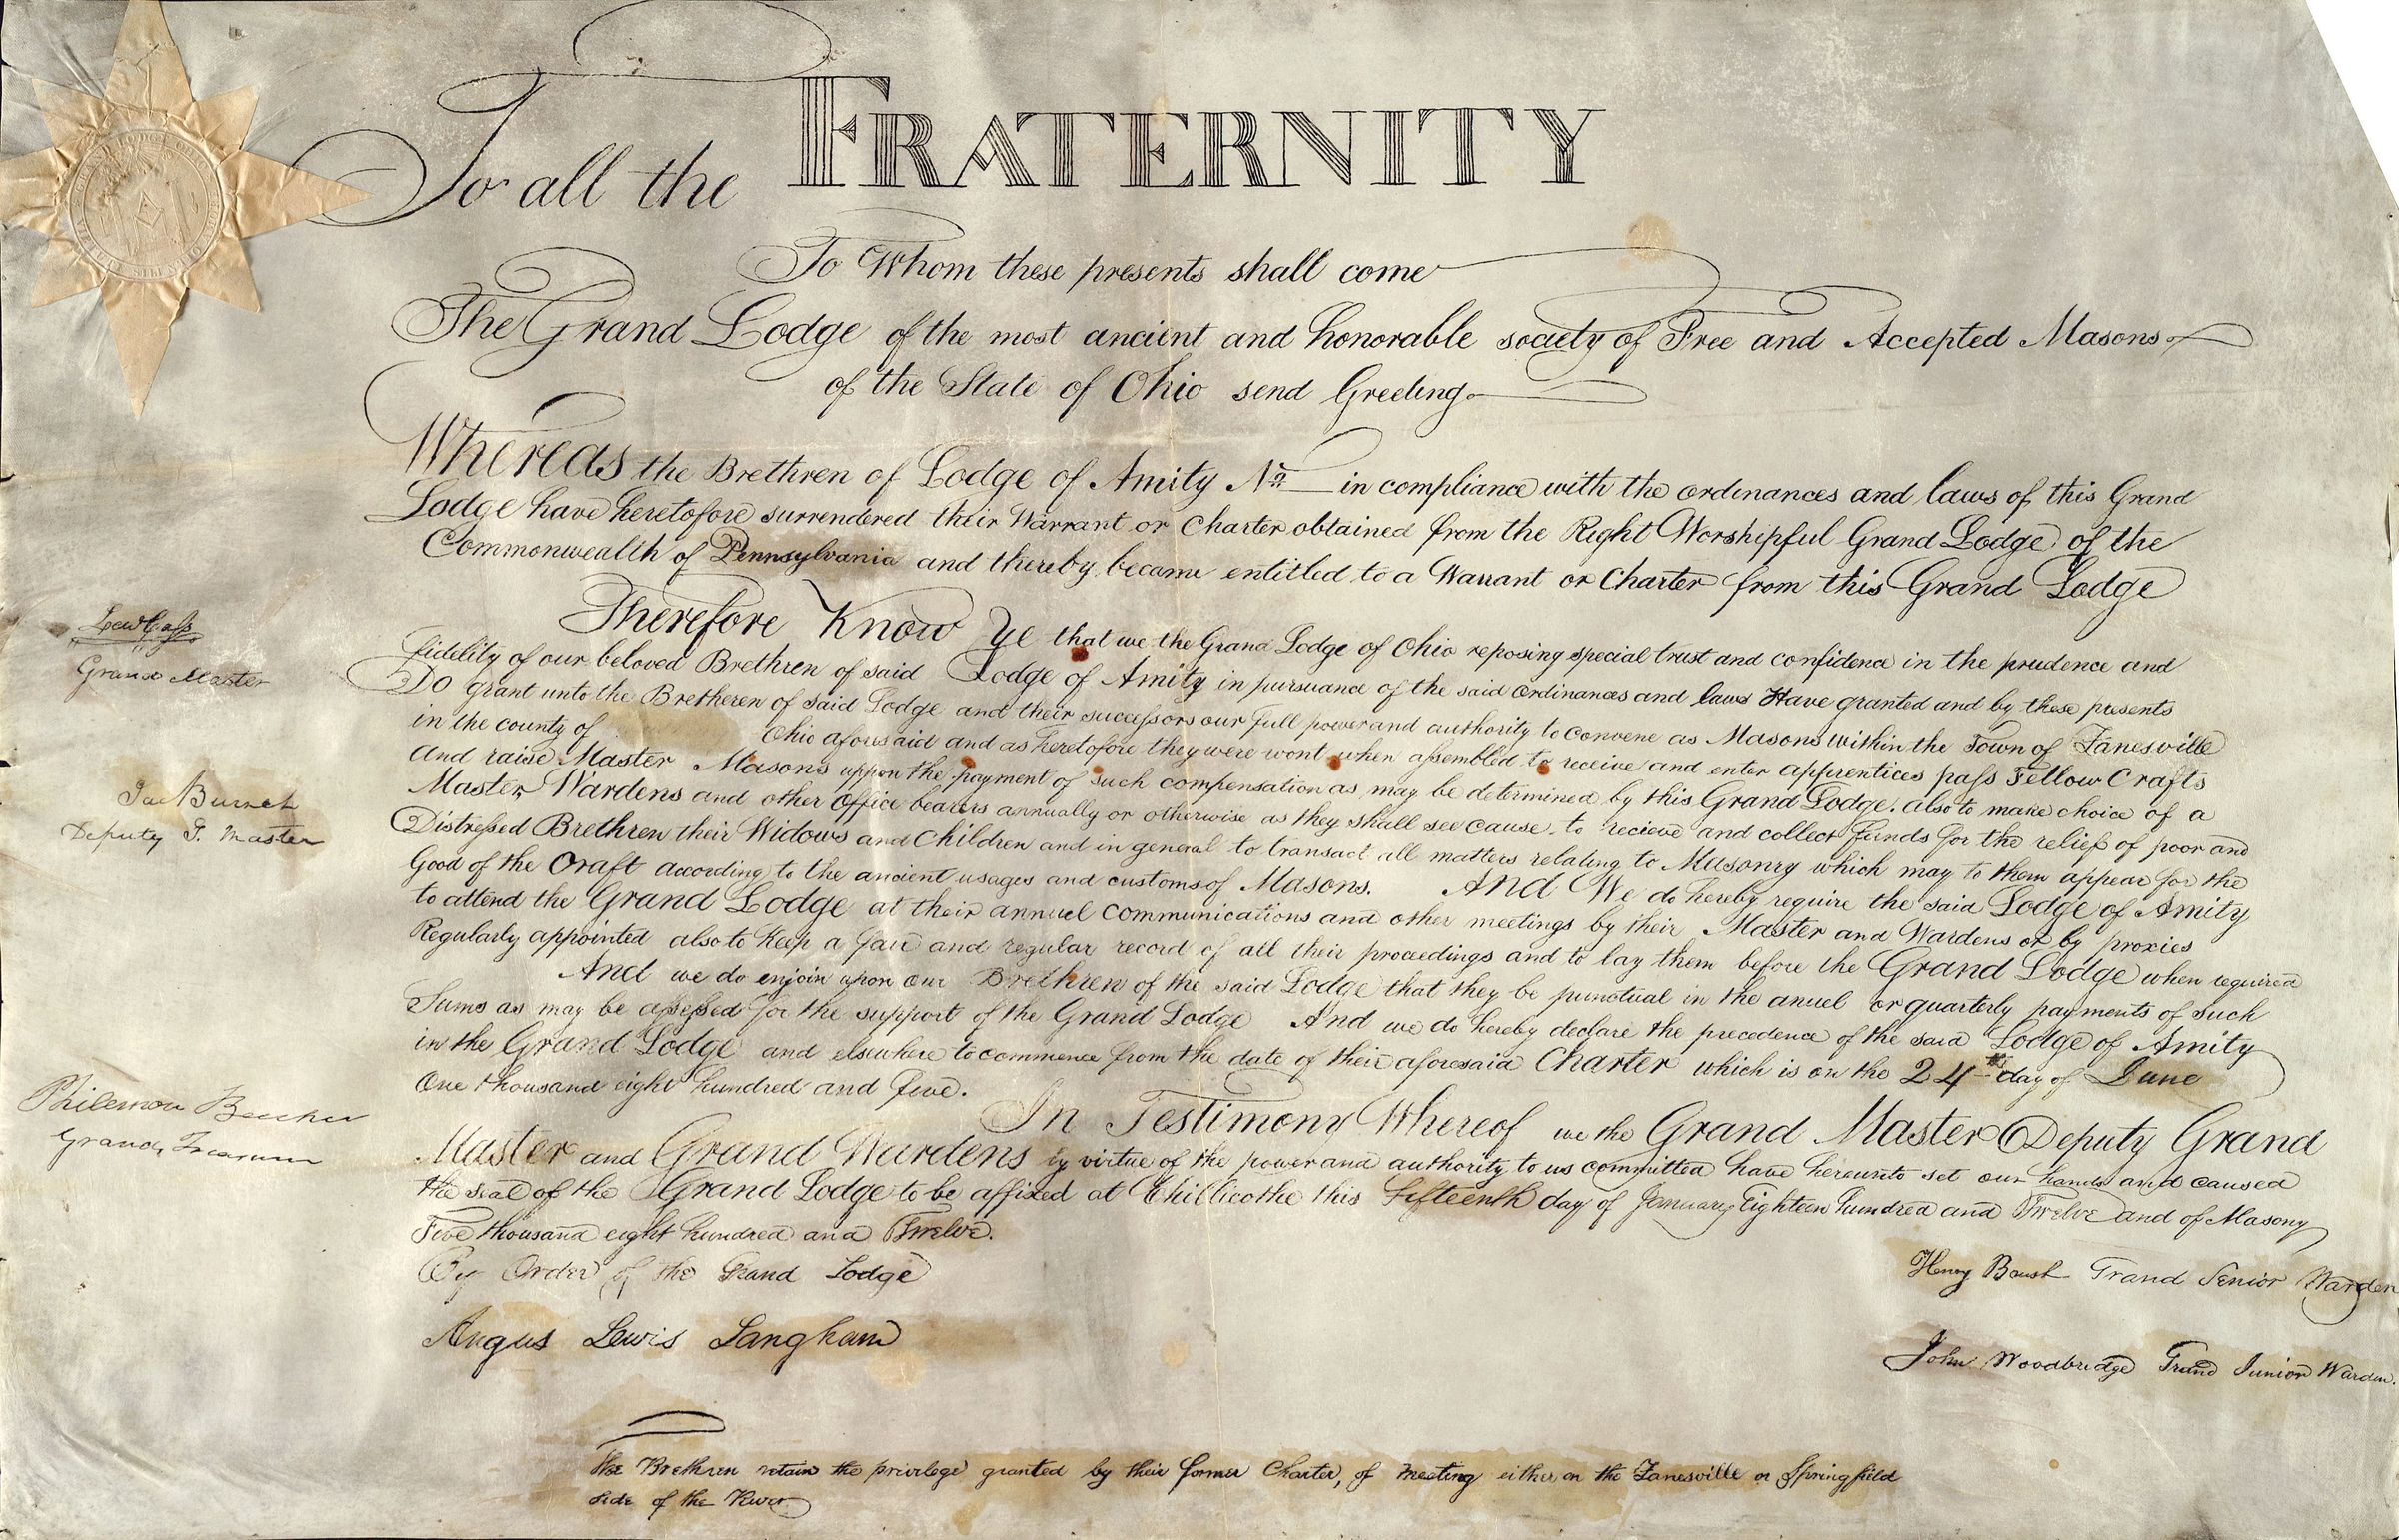 To all the FRATERNITY
To Whom these presents shall come
The Grand Lodge of the most ancient and honorable society of Free and Accepted Masons
of the State of Ohio send Greeting
Whereas the Brethren of Lodge of Amity No. in compliance with the ordinances and laws of this Grand
Lodge have heretofore surrendered their Warrant or Charter obtained from the Right Worshipful Grand Lodge of the
Commonwealth of Pennsylvania and thereby became entitled to a Warrant or Charter from this Grand Lodge
Therefore Know Ye that we the Grand Lodge of Ohio reposing special trust and confidence in the prudence and
fidelity of our beloved Brethren of said Lodge of Amity in pursuance of the said ordinances and laws Have granted and by these presents
Do grant unto the Bretheren of said Lodge and their successors our full power and authority to convene as Masons within the Town of Zanesville
in the county of Ohio aforesaid and as heretofore they were wont when assembled to receive and enter apprentices pass Fellow Crafts
and raise Master Masons uppon the payment of such compensation as may be determined by this Grand Lodge. also to make choice of a
Master, Wardens and other Office bearers annually or otherwise as they shall see cause. to recieve and collect funds for the relief of poor and
Distressed Brethren their Widows and Children and in general to transact all matters relating to Masonry which may to them appear for the
Good of the Craft according to the ancient usages and customs of Masons. And We do hereby require the said Lodge of Amity
to attend the Grand Lodge at their annuel communications and other meetings by their Master and Wardens or by proxies
Regularly appointed also to keep a fair and regular record of all their proceedings and to lay them before the Grand Lodge when required
And we do enjoin upon our Brethren of the said Lodge that they be punctual in the anuel or quarterly payments of such
Sums as may be assessed for the support of the Grand Lodge And we do hereby declare the precedence of the said Lodge of Amity
in the Grand Lodge and elsewhere to commence from the date of their aforesaid Charter which is on the 24th day of June
One thousand eight hundred and five.
In Testimony Whereof we the Grand Master Deputy Grand
Master and Grand Wardens by virtue of the power and authority to us committed have hereunto set our hands and caused
the seal of the Grand Lodge to be affixed at Chillicothe this Fifteenth day of January Eighteen hundred and Twelve and of Masony
Five thousand eight hundred and Twelve.
By Order of the Grand Lodge
Angus Lewis Langham
Lew Cass
Grand Master
Jac Burnet
Deputy G. Master
Philemon Beecher
Grand Treasurer
Henry Brush Grand Senior Warden
John Woodbridge Grand Junior Warden.
The Brethren retain the privilege granted by their former Charter, of meeting either on the Zanesville or Springfield
side of the River